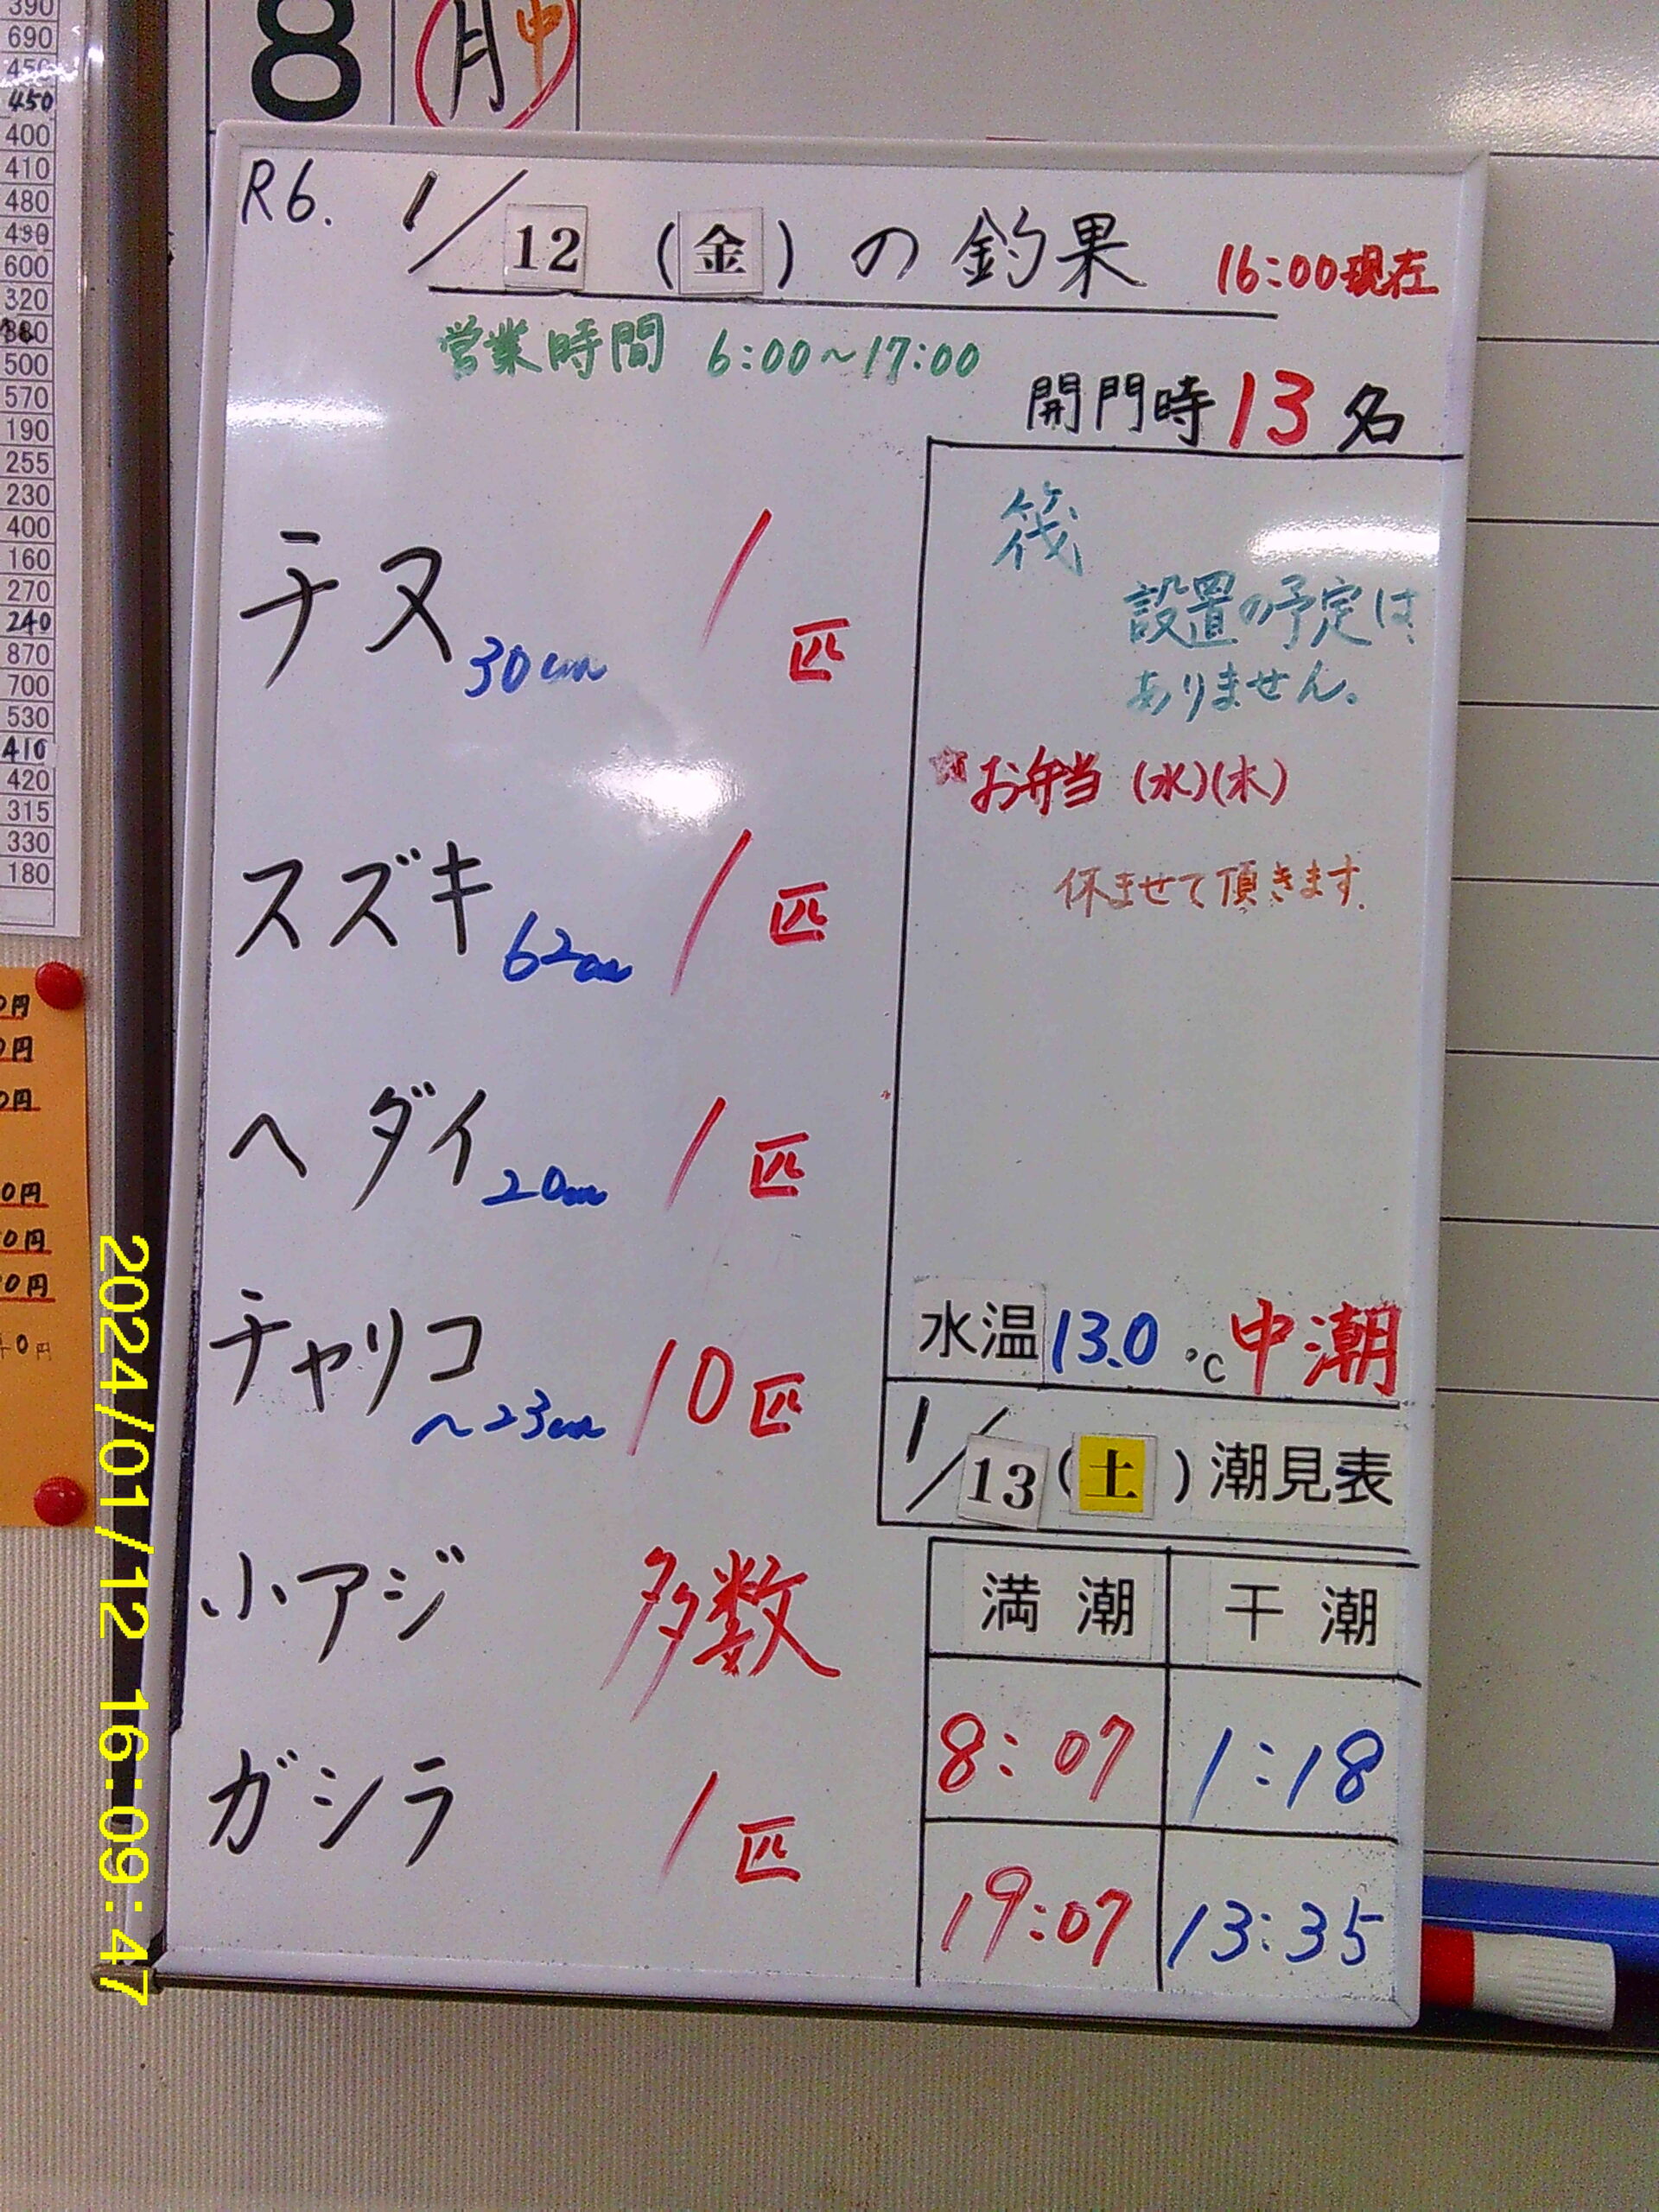 390
690
450
450
400
410
480
490
600
320
380
500
570
190
255
230
400
160
270
240
870
700
530
410
420
315
330
180
0円
0円
0円
0円
0円
0円
0円
8 月 中
R6. 1/12 (金) の釣果 16:00現在
営業時間 6:00~17:00
開門時 13名
チヌ 30cm 1匹
スズキ 62cm 1匹
ヘダイ 20cm 1匹
チャリコ ~23cm 10匹
小アジ 多数
ガシラ 1匹
筏
設置の予定は
ありません。
☆お弁当 (水)(木)
休ませて頂きます.
水温 13.0 ℃ 中潮
1/13 (土) 潮見表
満潮 干潮
8:07 1:18
19:07 13:35
2024/01/12 16:09:47